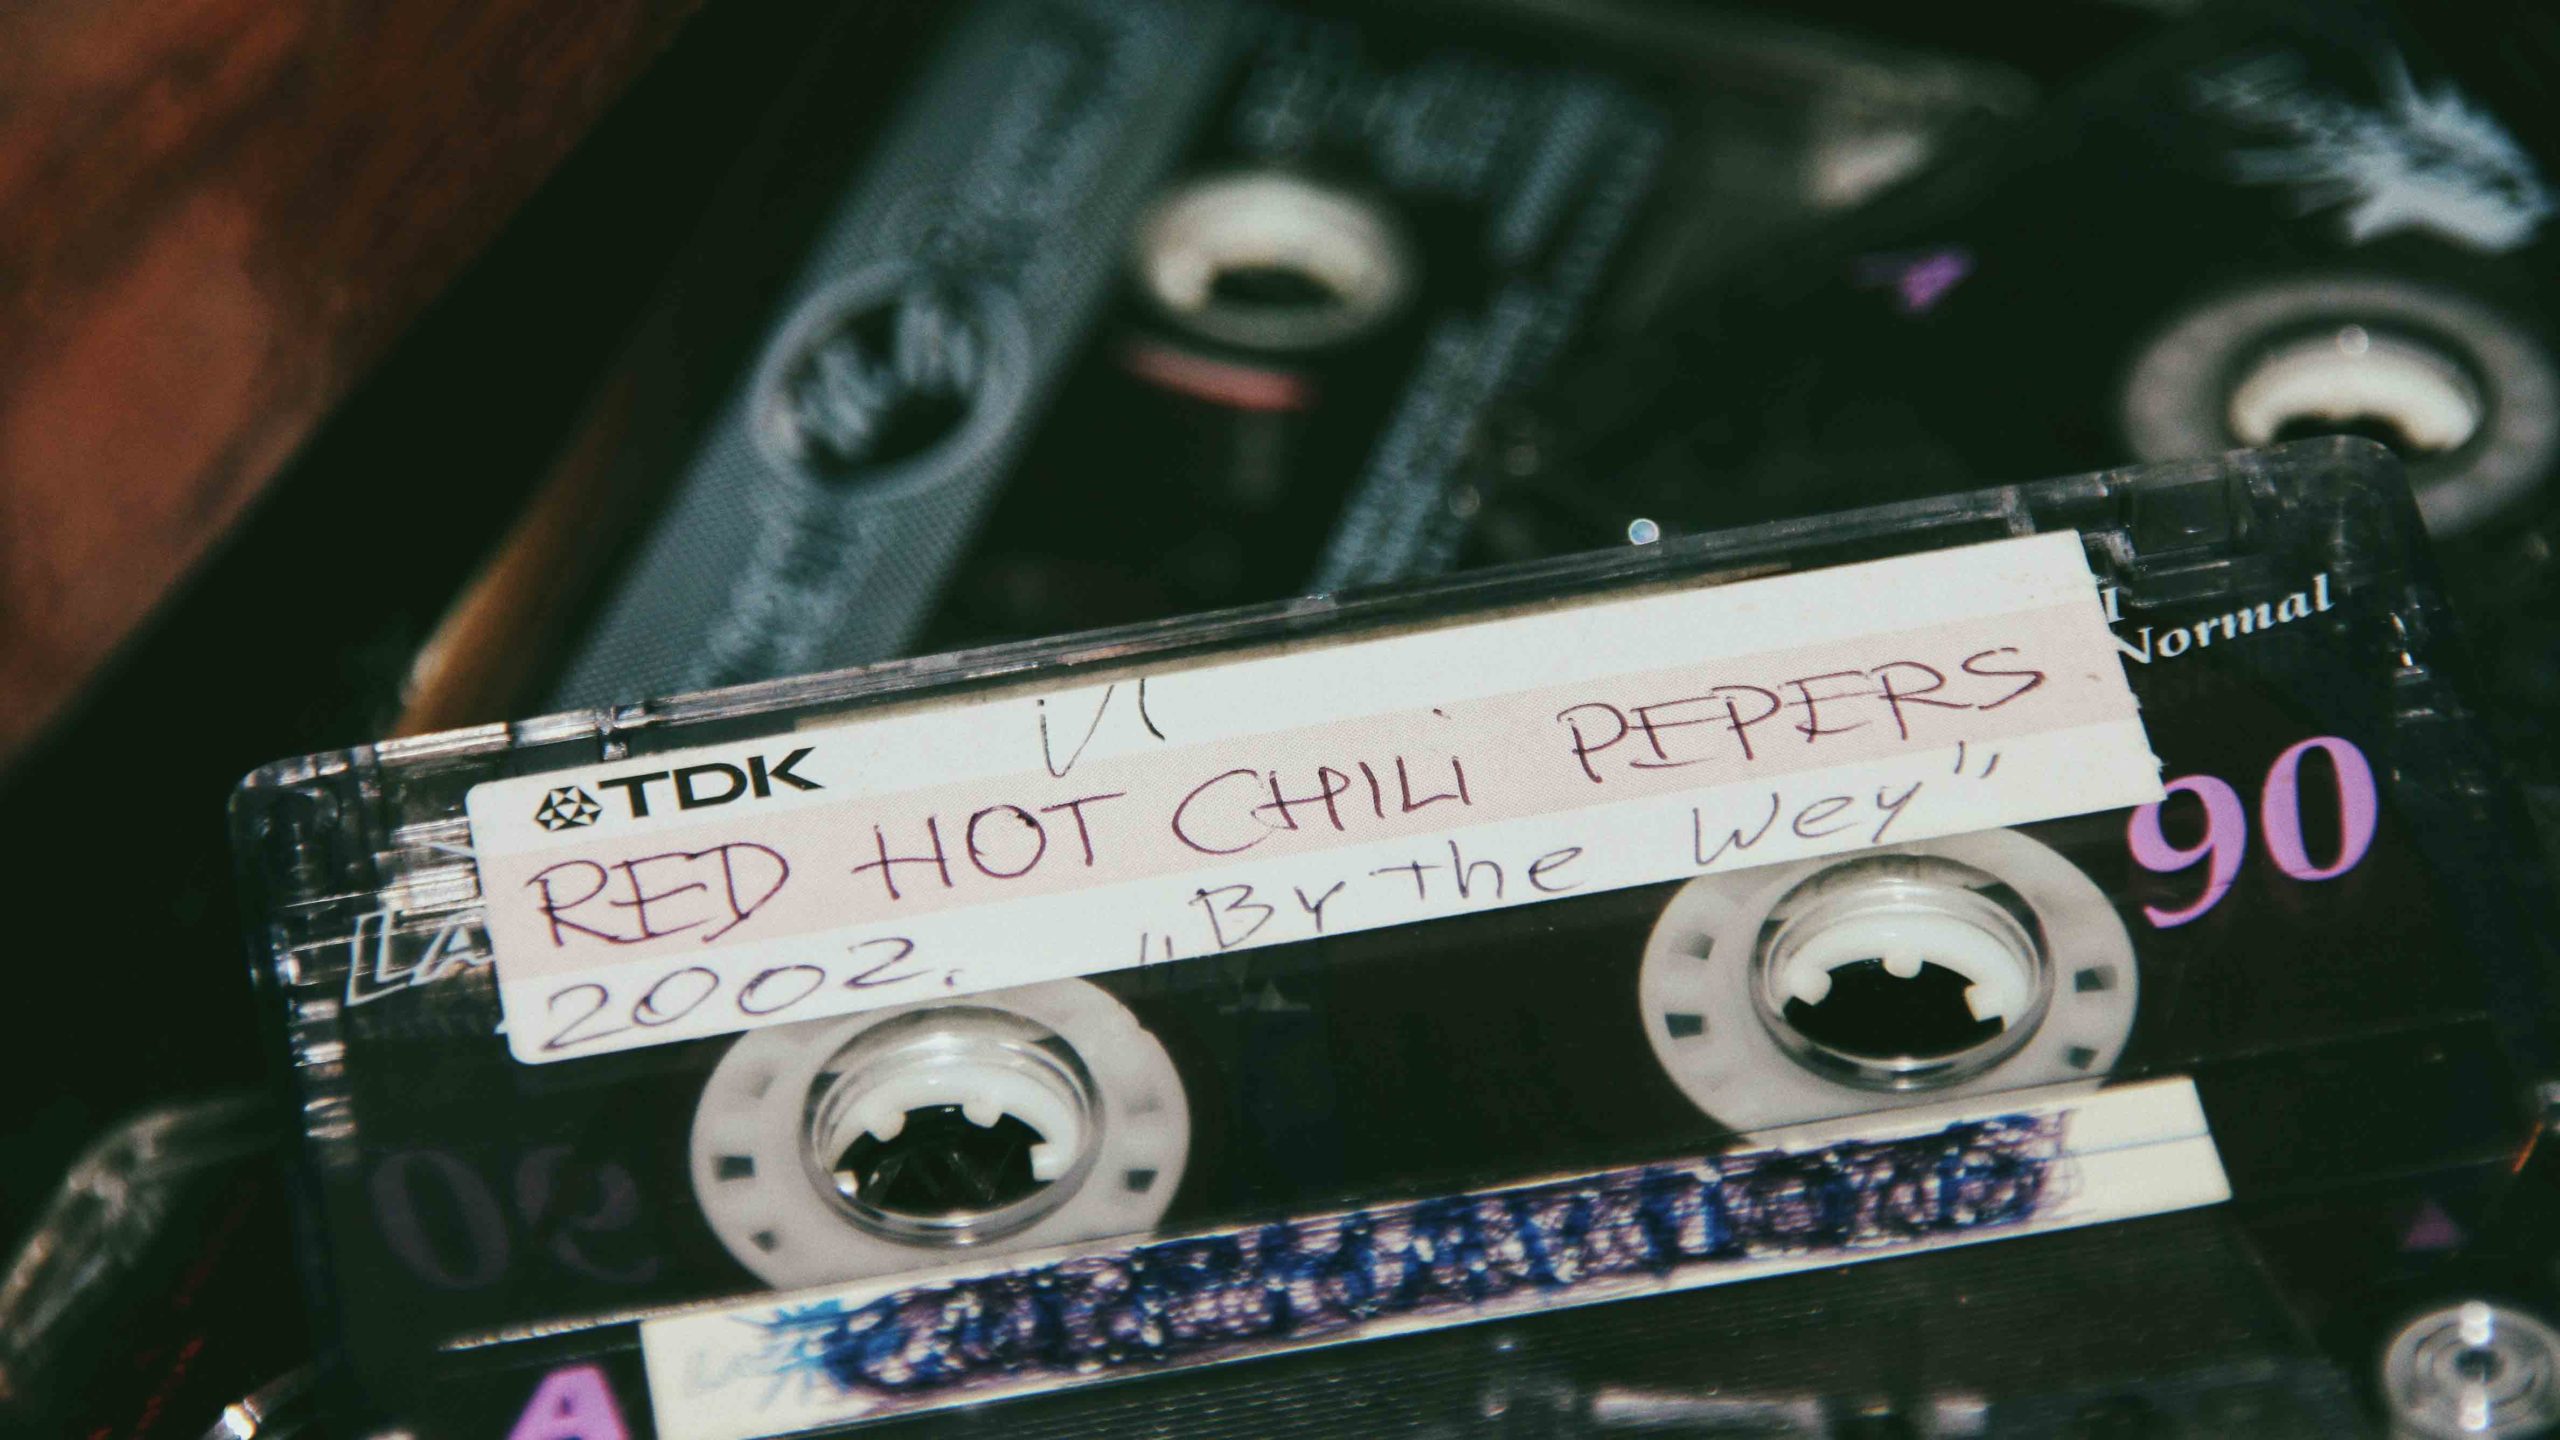 TDK
RED HOT CHILI PEPERS
2002. „By the Wey"
I
Normal
90
A